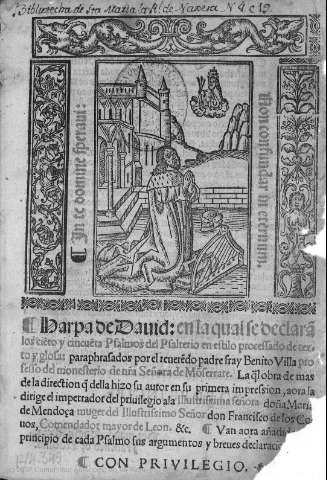 Bibliotheca de Sta Maria la Rl. de Naxera N 4 c 19
In te domine speraui:
Non confundar in eternum.
¶ Harpa de Dauid: en la qual se declarã
los ciẽto y cincuẽta Psalmos del Psalterio en estilo processado de tex-
to y glosa: paraphrasados por el reuerẽdo padre fray Benito Villa pro
fesso del monesterio de nřa Señora de Mõserrate. La q̃l obra de mas
de la direction q̃ della hizo su autor en su primera impression, aora la
dirige el impetrador del priuilegio ala Illustrissima señora doña Maria
de Mendoça muger del Illustrissimo Señor don Francisco de los Co
uos, Comendador mayor de Leon. &c. ¶ Van aora añadi
principio de cada Psalmo sus argumentos y breues declaracio
¶ CON PRIVILEGIO.